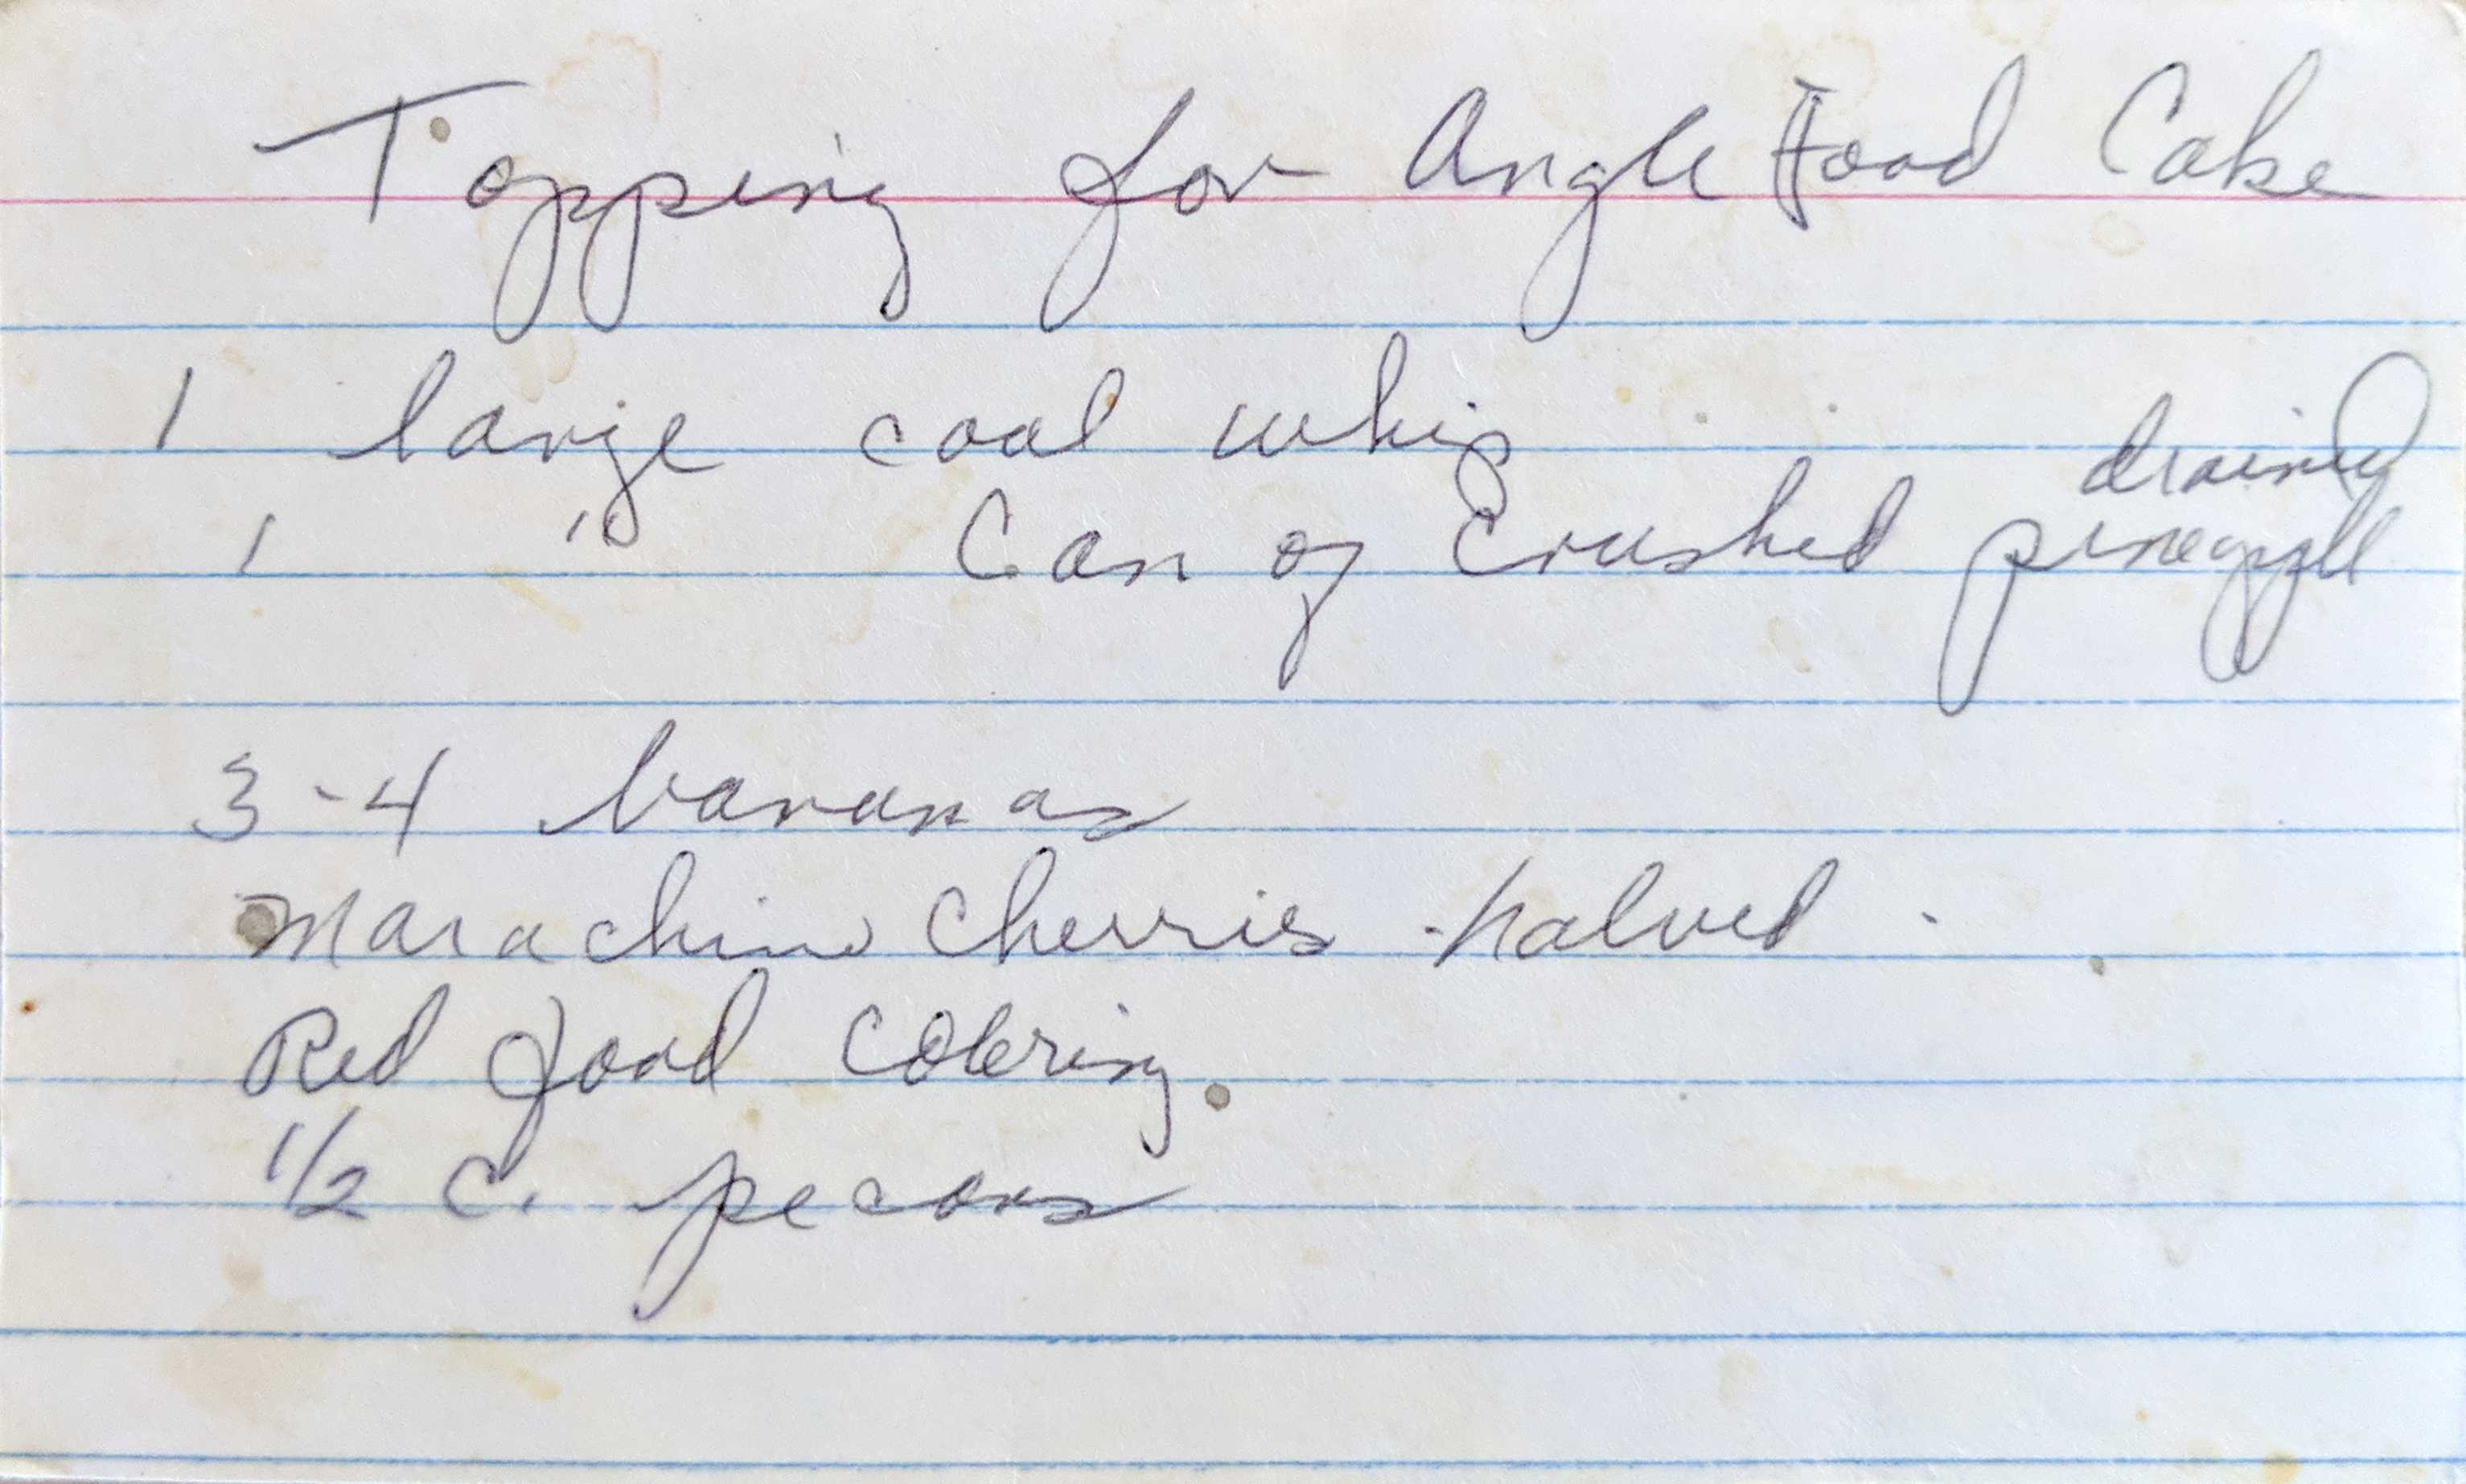 Topping for Angle Food Cake
1 large cool whip
drained
1 " Can of Crushed pineapple
3-4 bananas
Marachino Cherries - halved -
Red food Coloring.
1/2 c. pecans